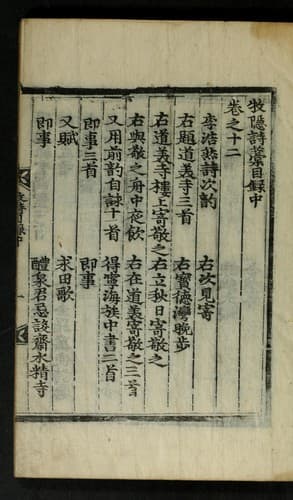 牧隱詩藁目錄中
卷之十二
李浩然詩次韵
右次見寄
右題道義寺三首
右寳德灣晚步
右道義寺樓上寄敬之
右立秋日寄敬之
右與敬之舟中夜飮
右在道義寄敬之三首
又用前韵自詠十首
得寧海族中書二首
即事三首
即事
又賦
求田歌
即事
醴泉君忌設齋水精寺